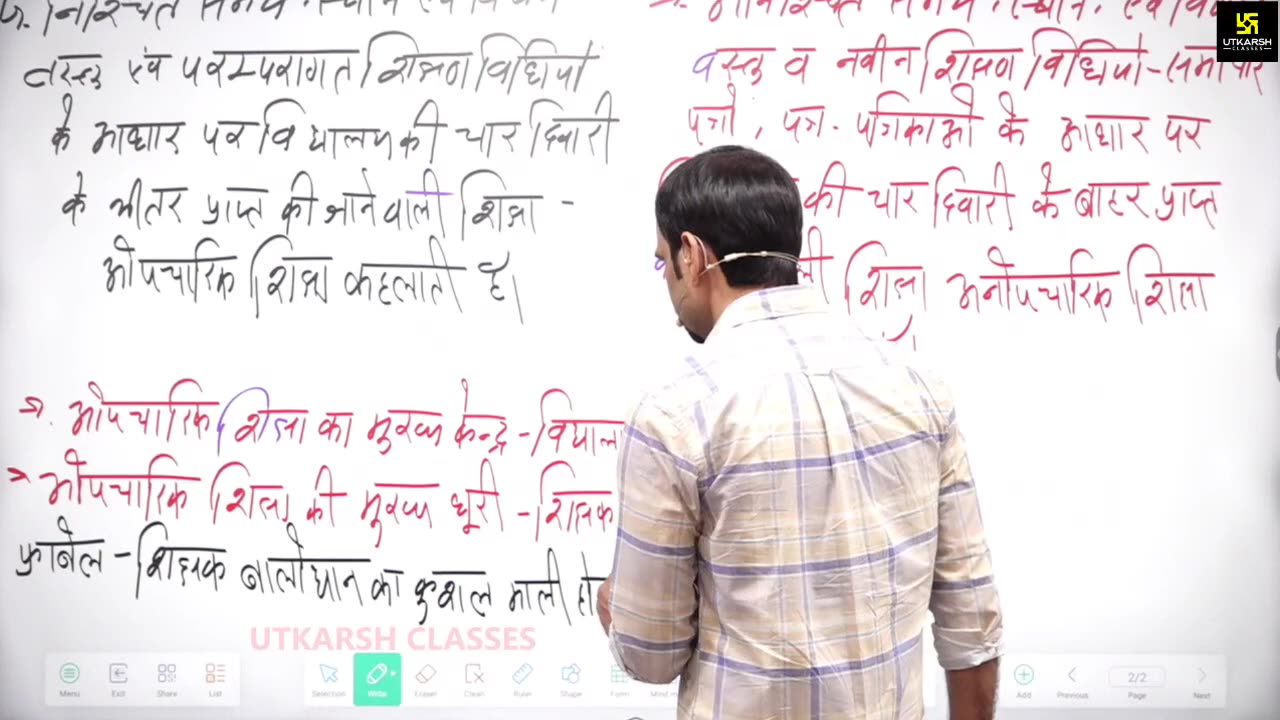 निश्चित समय, स्थान एवं विषय
वस्तु एवं परम्परागत शिक्षण विधियों
के आधार पर विद्यालय की चार दिवारी
के भीतर प्राप्त की जाने वाली शिक्षा -
औपचारिक शिक्षा कहलाती है।
→ औपचारिक शिक्षा का मुख्य केन्द्र - विद्याल
→ औपचारिक शिक्षा की मुख्य धूरी - शिक्षक
फ्राबेल - शिक्षक बालोद्यान का कुशल माली हो
अनिश्चित समय, स्थान, एवं विषय
वस्तु व नवीन शिक्षण विधियों - समाचार
पत्रों, पत्र - पत्रिकाओं के आधार पर
की चार दिवारी के बाहर प्राप्त
ली शिक्षा अनौपचारिक शिक्षा
UTKARSH
CLASSES
UTKARSH CLASSES
Menu Exit Share List Selection Write Eraser Clean Ruler Shape Form Mind m Add Previous 2/2 Page Next